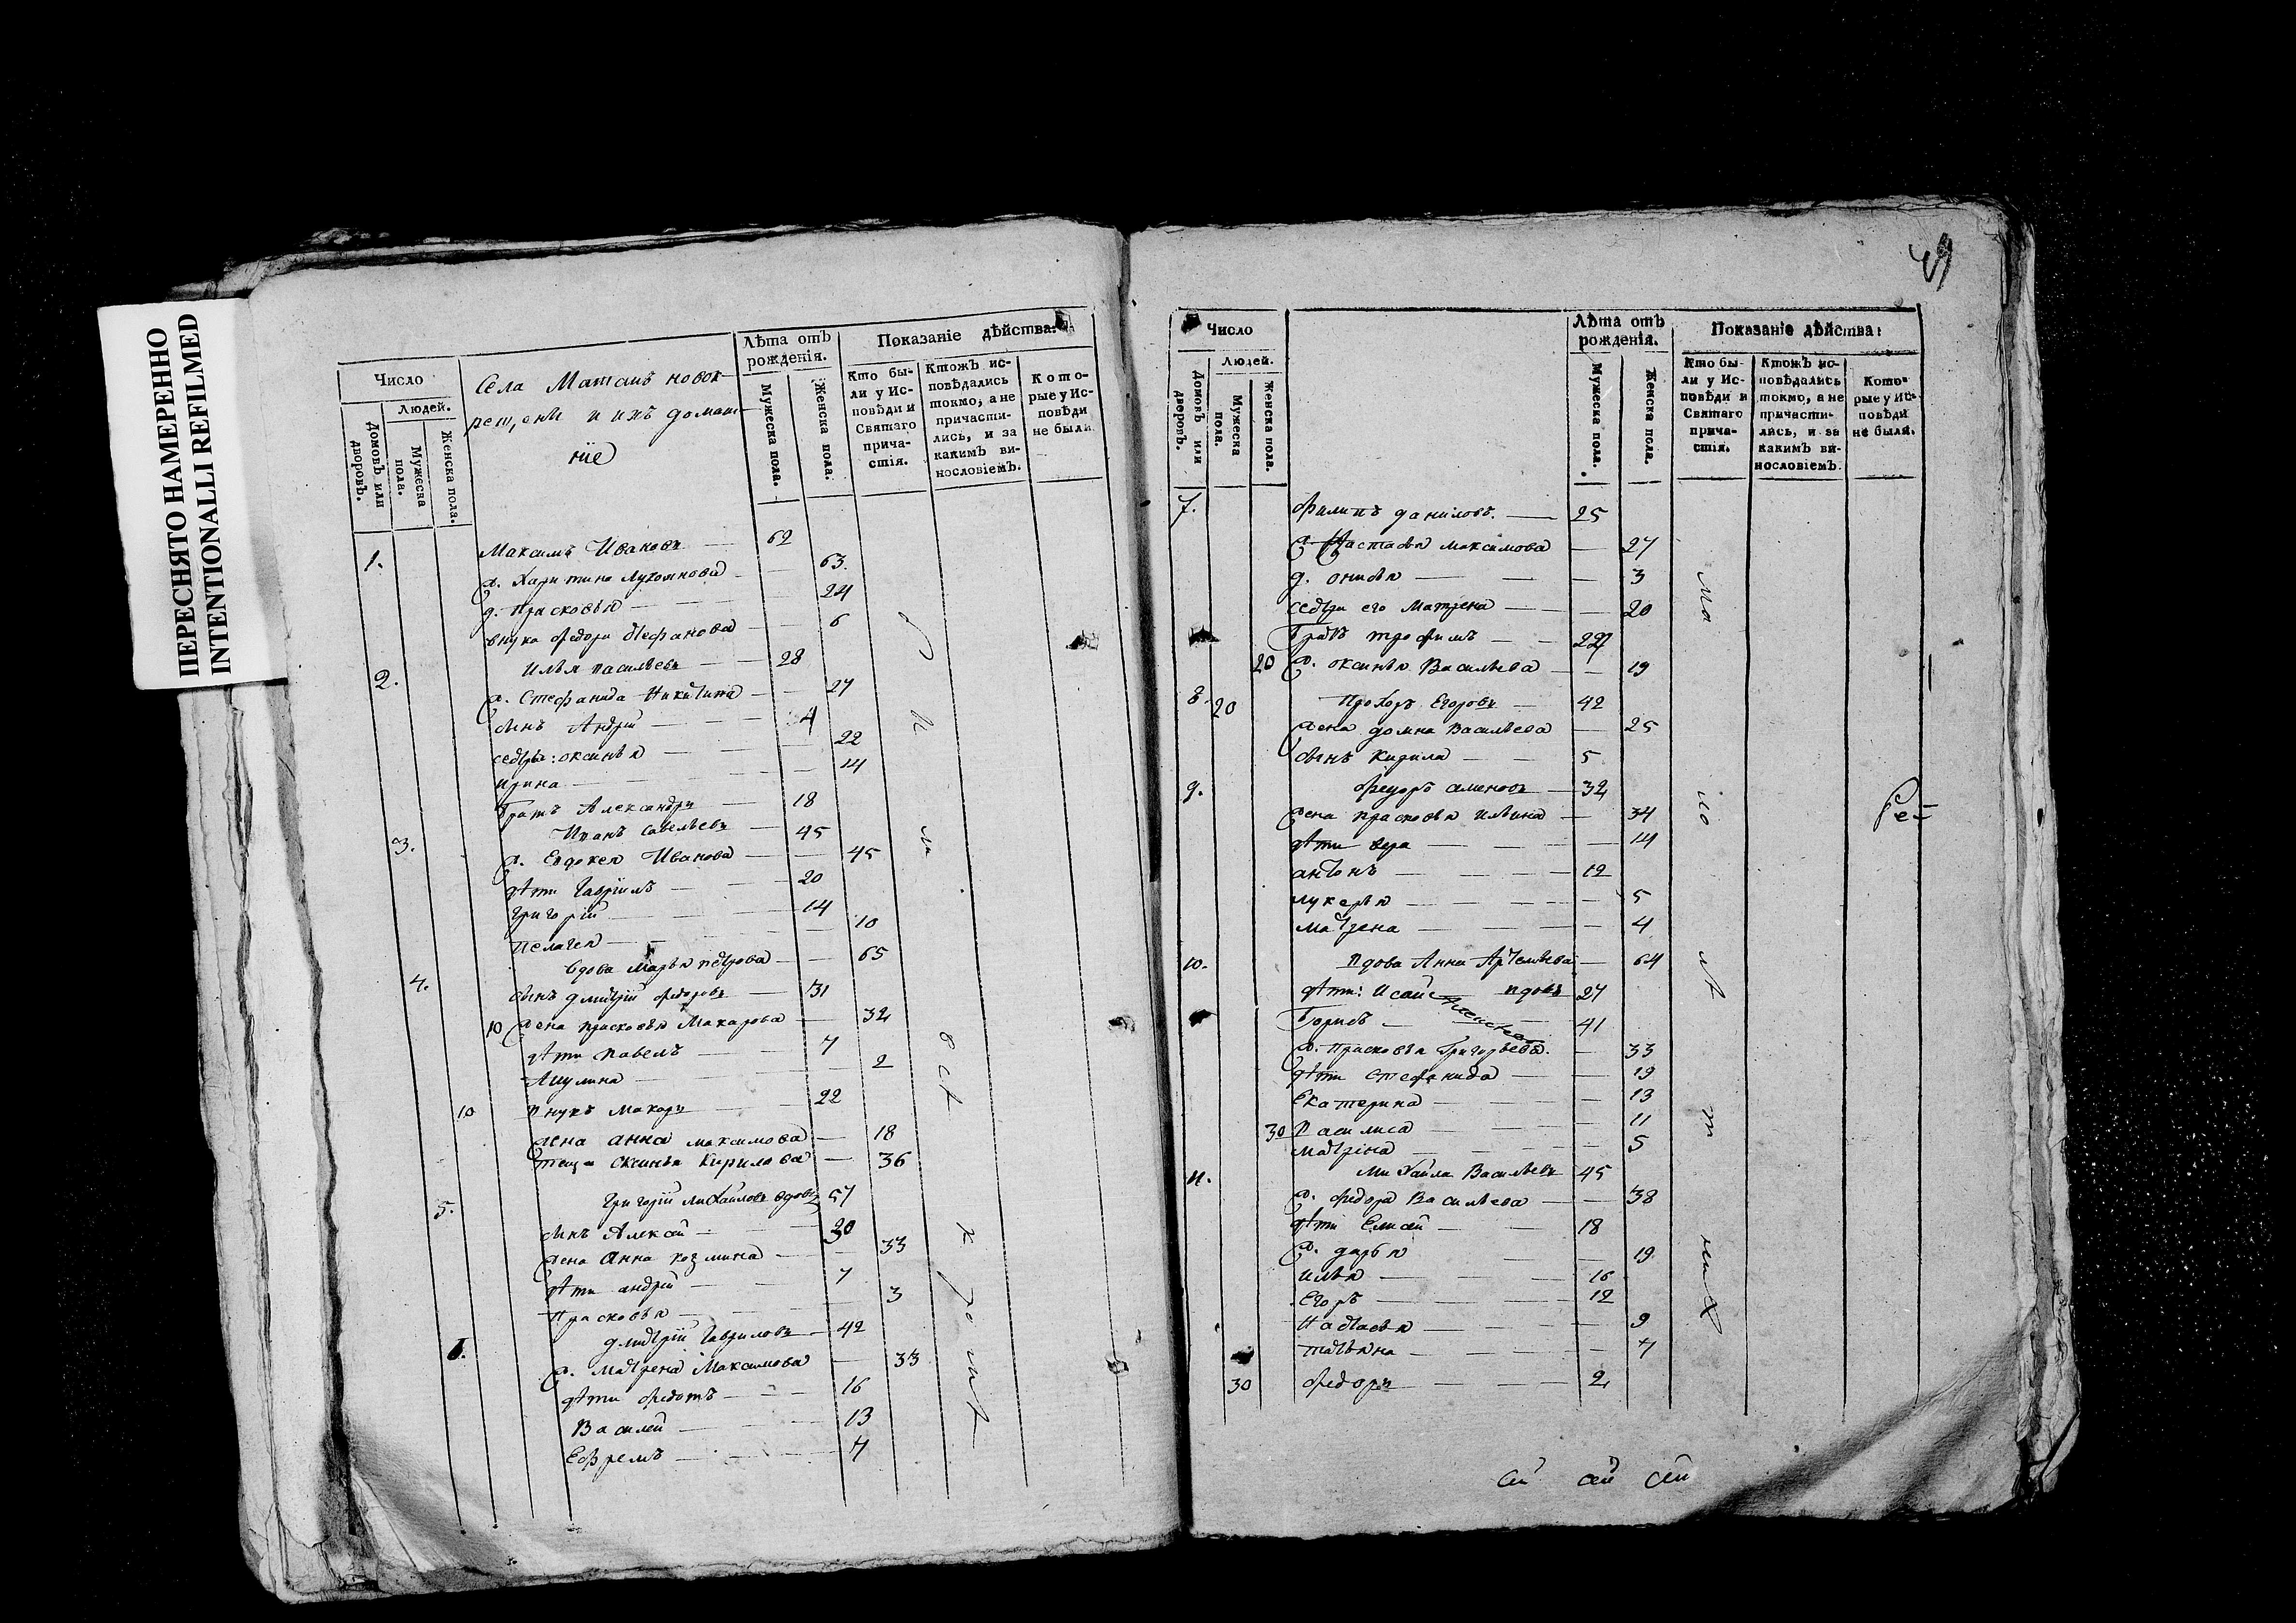 ПЕРЕСНЯТО НАМЕРЕННО
INTENTIONALLI REFILMED
49
Число
Людей.
Домовъ или дворовъ.
Мужеска пола.
Женска пола.
Села новок
рещены и ихъ домаш
нїе
Лѣта отъ рожденїя.
Мужеска пола.
Женска пола.
Показанїе дѣйства:
Кто были у Исповѣди и Святаго причастїя.
Ктожъ исповѣдались токмо, а не причастились, и за какимъ винословїемъ.
Которые у Исповѣди не были.
1. Максимъ Ивановъ 62
ж. Харитина 63
д. Прасковья 24
внука Федора Стефанова 6
2. Илья Васильевъ 28
ж. Стефанида Никитина 27
сынъ Андрїй 4
сестры: оксинья 22
ирина 14
братъ Александръ 18
3. Иванъ Савельевъ 45
ж. Евдокея Иванова 45
дѣти Гаврїилъ 20
Григорїй 14
Пелагея 10
4. вдова Марья петрова 65
сынъ дмитрїй федоровъ 31
10 жена прасковья Макарова 32
дѣти павелъ 7
Акулина 2
10 внукъ Макаръ 22
жена анна максимова 18
теща Оксинья Кирилова 36
5. Григорїй михайловъ вдовъ 57
сынъ Алексѣй 30
жена Анна козмина 33
дѣти андрїй 7
Прасковья 3
6. дмитрїй Гавриловъ 42
ж. матрена Максимова 33
дѣти федотъ 16
Василей 13
Ефремъ 7
Число
Людей.
Домовъ или дворовъ.
Мужеска пола.
Женска пола.
Лѣта отъ рожденїя.
Мужеска пола.
Женска пола.
Показанїе дѣйства:
Кто были у Исповѣди и Святаго причастїя.
Ктожъ исповѣдались токмо, а не причастились, и за какимъ винословїемъ.
Которые у Исповѣди не были.
7. Филипъ даниловъ. 25
ж. Настасья максимова 27
д. 3
сестра его Матрена 20
братъ трофимъ 22
20 ж. оксинья Васильева 19
8. 20 Прохоръ Егоровъ 42
жена домна Васильева 25
сынъ Кирила 5
9. Федоръ 32
жена прасковья ильина 34
дѣти вера 14
антонъ 12
лукерья 5
матрена 4
10. вдова Анна Артемьева 64
дѣти: Исай вдовъ 27
Борисъ 41
ж. прасковья Григорьева. 33
дѣти стефанида 19
Екатерина 13
30 василиса 11
матрїона 5
11. михайла Васильевъ 45
ж. федора Васильева 38
дѣти Елисѣй 18
ж. дарья 19
илья 16
Егоръ 12
настасья 9
татьяна 7
30 федоръ 2
сей сей сей